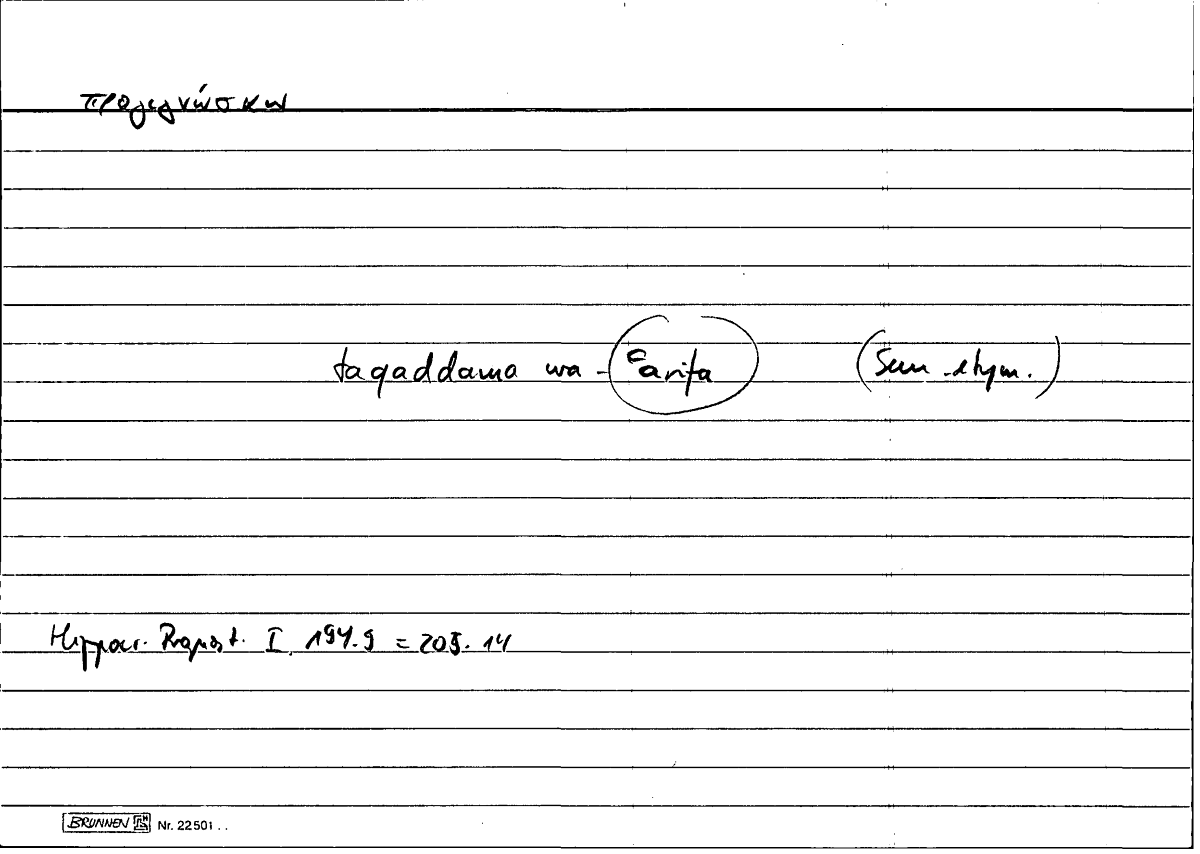 προγιγνώσκων
taqaddama wa - ʿarifa (Sem. etym.)
Hippocr. Prognost. I. 194.9 = 205.14
BRUNNEN Nr. 22501 . .